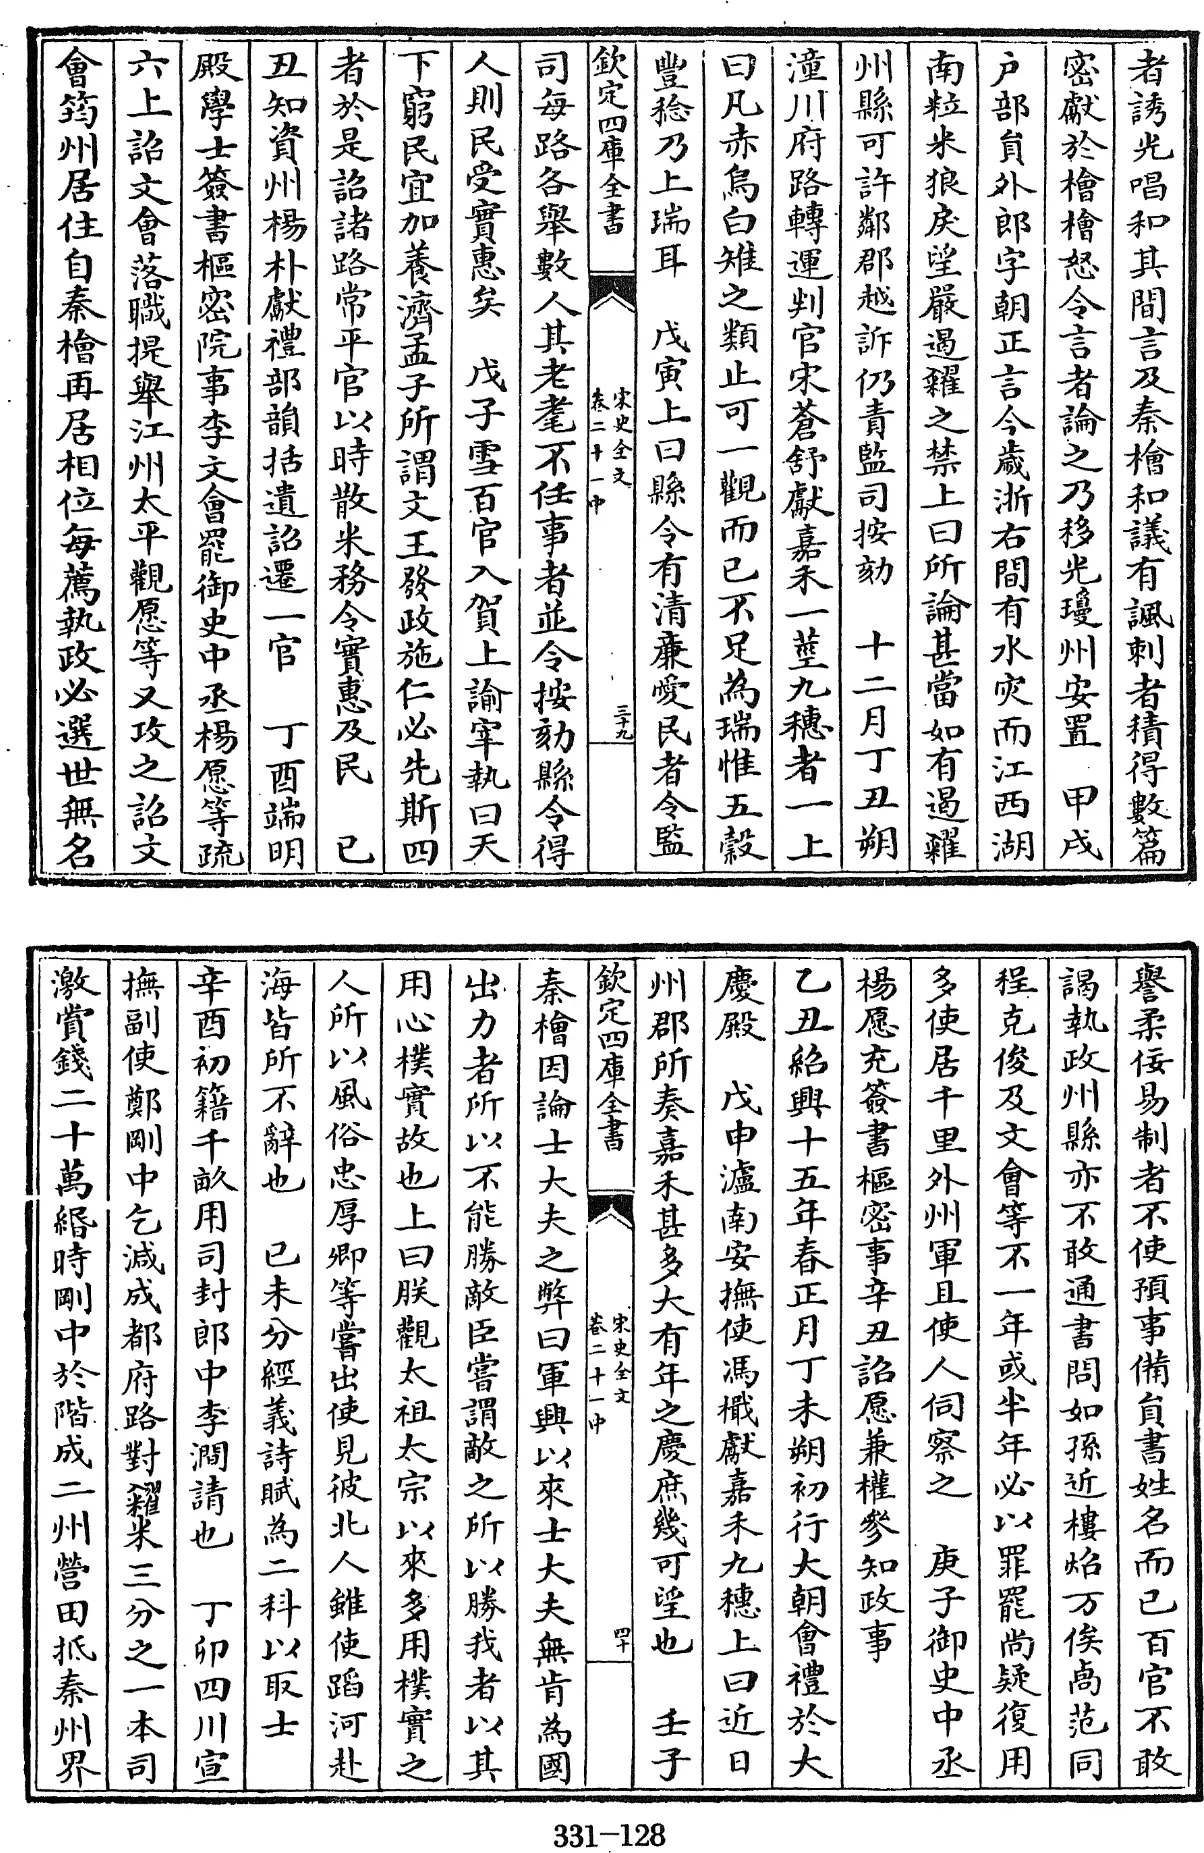 者誘光唱和其間言及秦檜和議有諷刺者積得數篇
密獻於檜檜怒令言者論之乃移光瓊州安置　甲戌
户部員外郎字朝正言今歲浙右間有水灾而江西湖
南粒米狼戾望嚴遏糴之禁上曰所論甚當如有遏糴
州縣可許鄰郡越訴仍責監司按劾　十二月丁丑朔
潼川府路轉運判官宋蒼舒獻嘉禾一莖九穗者一上
曰凡赤烏白雉之類止可一觀而已不足為瑞惟五穀
豐稔乃上瑞耳　戊寅上曰縣令有清亷愛民者令監
欽定四庫全書
宋史全文
卷二十一中
三十九
司每路各舉數人其老耄不任事者並令按劾縣令得
人則民受實惠矣　戊子雪百官入賀上諭宰執曰天
下窮民宜加養濟孟子所謂文王發政施仁必先斯四
者於是詔諸路常平官以時散米務令實惠及民　已
丑知資州楊朴獻禮部韻括遺詔遷一官　丁酉端明
殿學士簽書樞密院事李文會罷御史中丞楊愿等疏
六上詔文會落職提舉江州太平觀愿等又攻之詔文
會筠州居住自秦檜再居相位每薦執政必選世無名
譽柔佞易制者不使預事備員書姓名而已百官不敢
謁執政州縣亦不敢通書問如孫近樓炤万俟卨范同
程克俊及文會等不一年或半年必以罪罷尚疑復用
多使居千里外州軍且使人伺察之　庚子御史中丞
楊愿充簽書樞密事辛丑詔愿兼權參知政事
乙丑紹興十五年春正月丁未朔初行大朝會禮於大
慶殿　戊申瀘南安撫使馮檝獻嘉禾九穗上曰近日
州郡所奏嘉禾甚多大有年之慶庶幾可望也　壬子
欽定四庫全書
宋史全文
卷二十一中
四十
秦檜因論士大夫之弊曰軍興以來士大夫無肯為國
出力者所以不能勝敵臣嘗謂敵之所以勝我者以其
用心樸實故也上曰朕觀太祖太宗以來多用樸實之
人所以風俗忠厚卿等嘗出使見彼北人雖使蹈河赴
海皆所不辭也　已未分經義詩賦為二科以取士
辛酉初籍千畝用司封郎中李澗請也　丁卯四川宣
撫副使鄭剛中乞減成都府路對糴米三分之一本司
激賞錢二十萬緡時剛中於階成二州營田抵秦州界
331-128